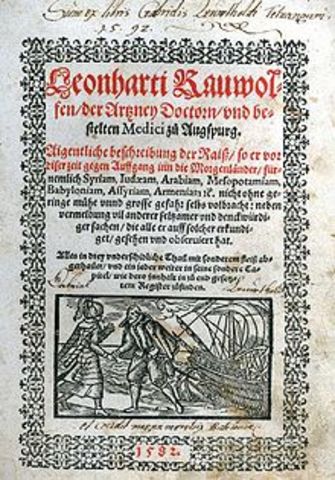 ex libris Gabrielis
1592.
Leonharti Rauwol-
fen/ der Artzney Doctorn/ vnd be-
stelten Medici zů Augspurg.
Aigentliche beschreibung der Raiß/ so er vor
diser zeit gegen Auffgang inn die Morgenländer/ für-
nemlich Syriam, Iudæam, Arabiam, Mesopotamiam,
Babyloniam, Assyriam, Armeniam ꝛc. nicht ohne ge-
ringe mühe vnnd grosse gefahr selbs volbracht: neben
vermeldung vil anderer seltzamer vnd denckwürdi-
ger sachen/ die alle er auff solcher erkundi-
get/ gesehen vnd obseruiert hat.
Alles in drey vnderschidliche Thail mit sonderem fleiß abge-
thailet/ vnd ein jeder weiter in seine sondere Ca-
pitel/ wie dero innhalt in zů end gesetz-
tem Register zůfinden.
1582.